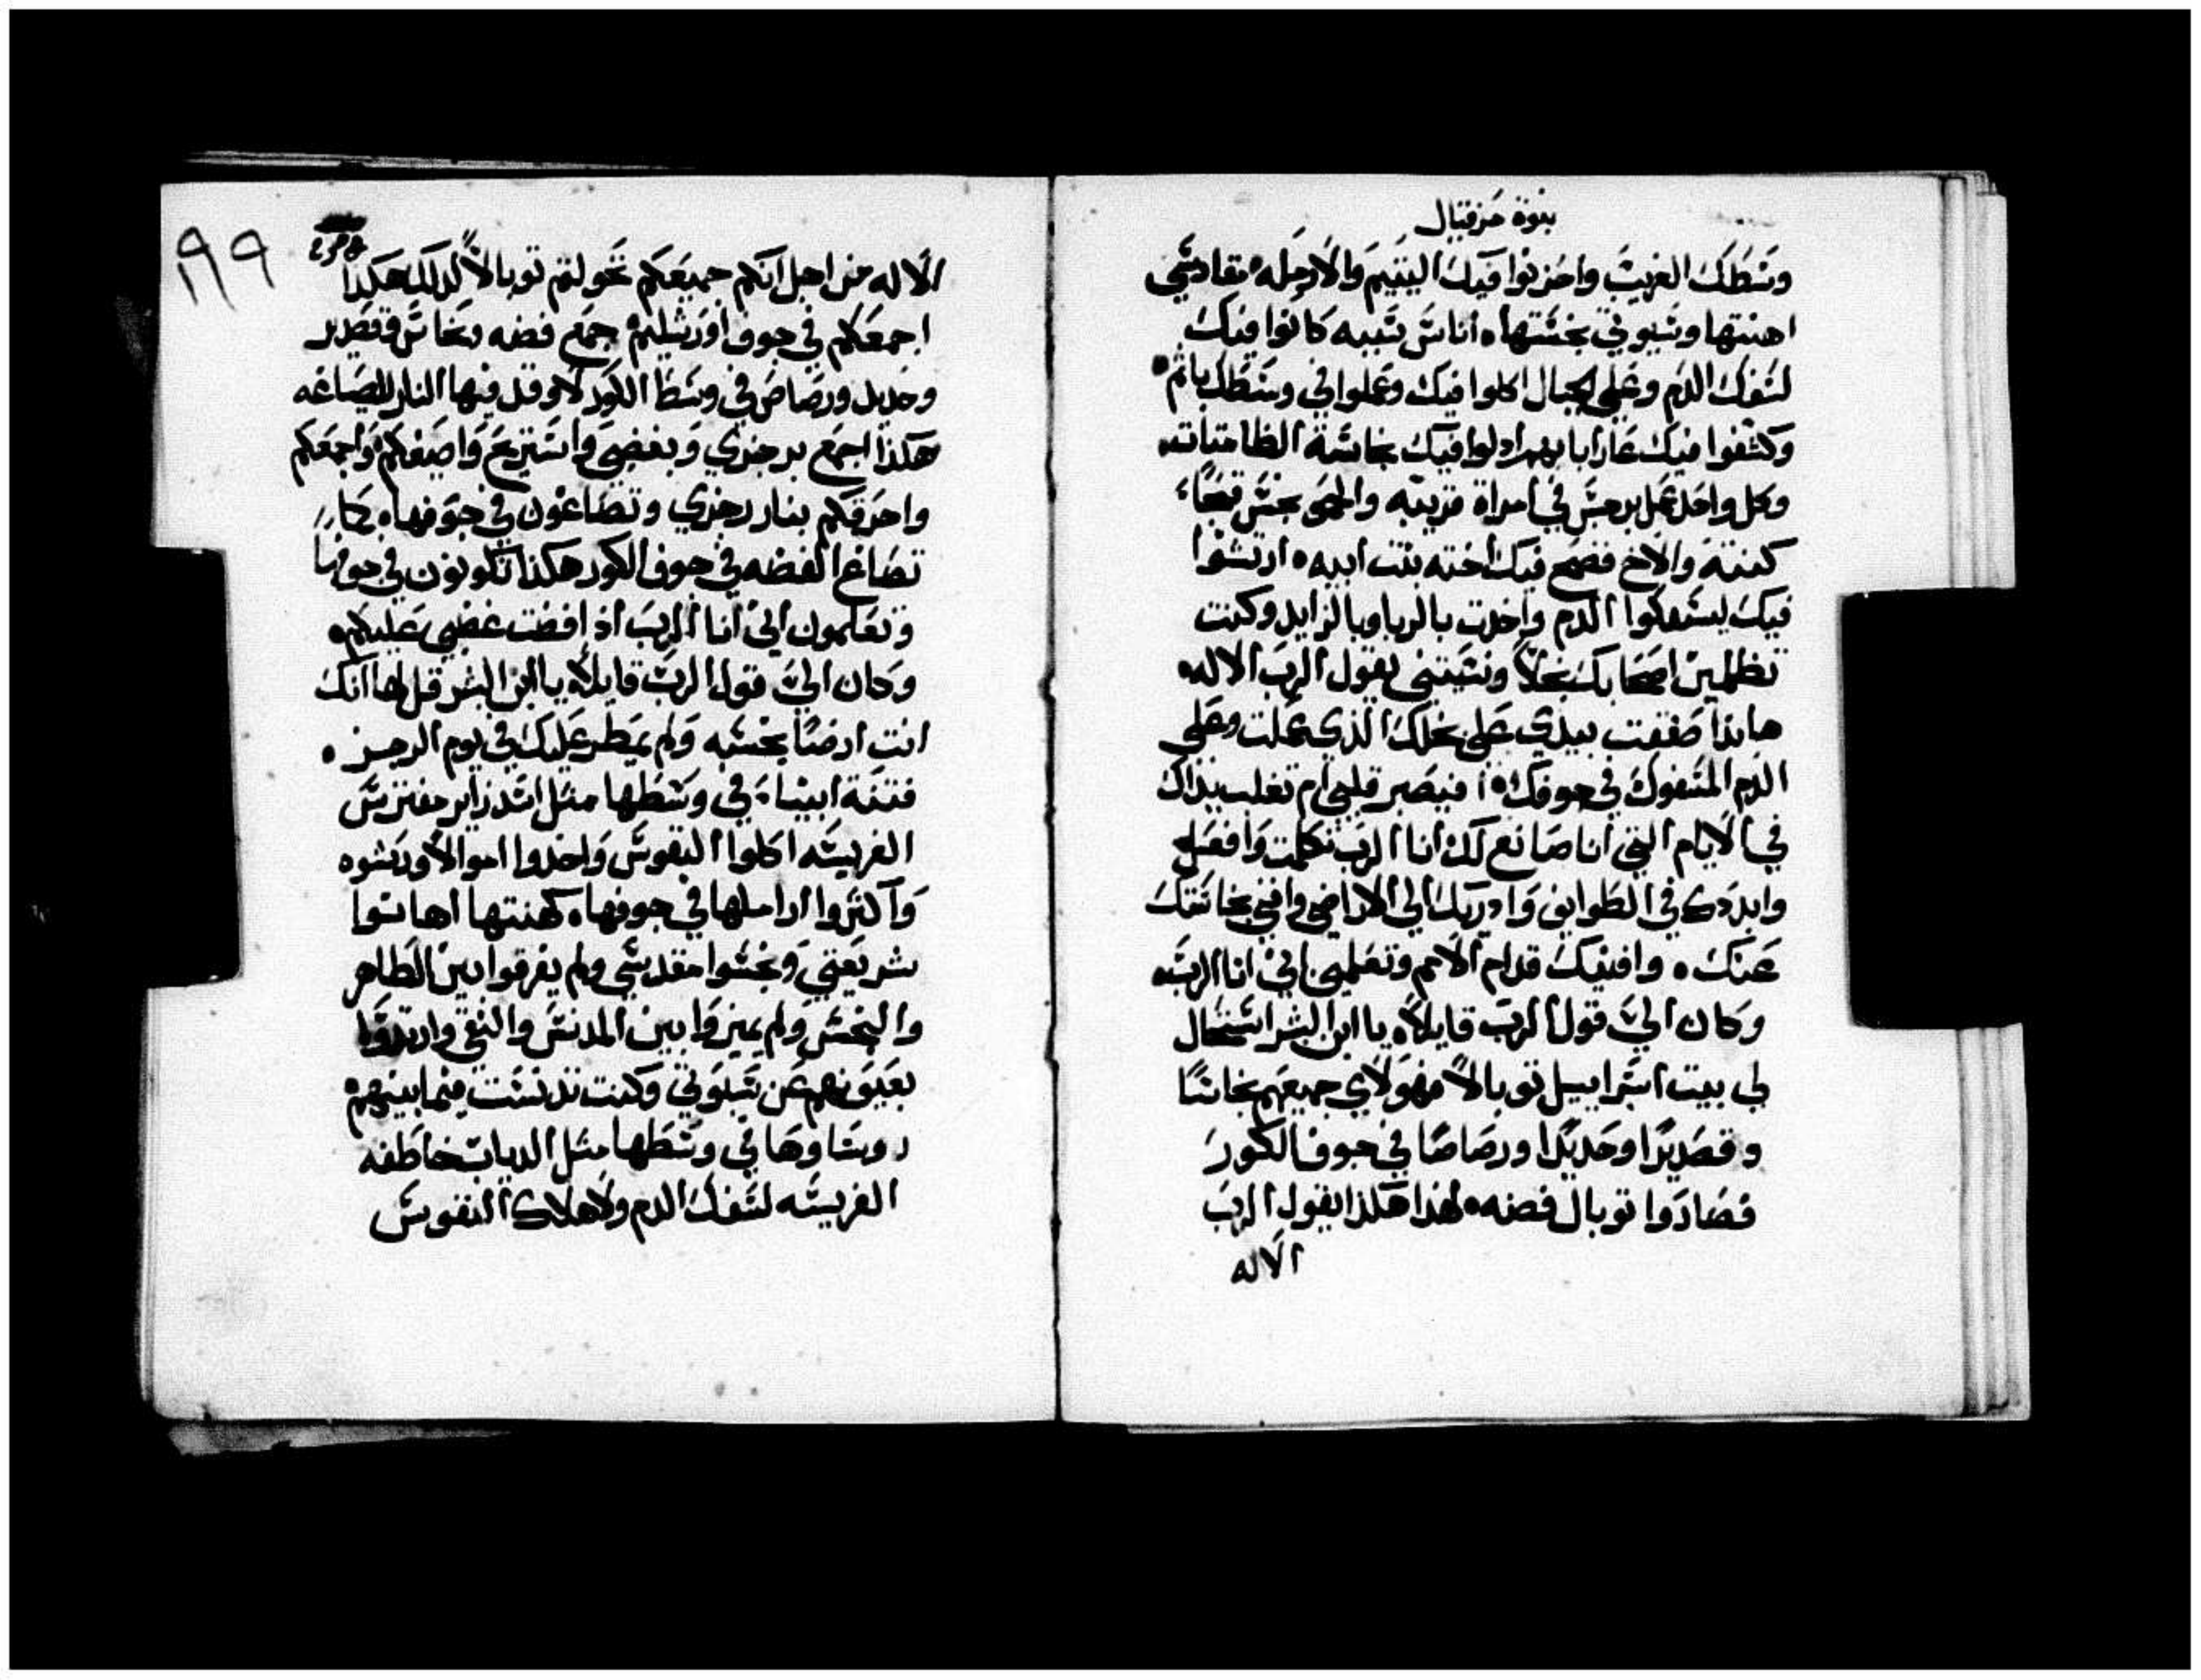 نبوة حزقيال
وسَطك الغريب واحزنوا فيك اليتيم والارمله مقادسي
اهنتها وسبوتي نجستها اناس نميمه كانوا فيك
لسفك الدم وعلي الجبال اكلوا فيك وعملوا في وسطك باثم
وكشفوا فيك عار ابايهم اذلوا فيك نجاسة الطامثات
وكل واحد عمل برجس في امراة قريبه والحمى نجس قبحًا
كنته والاخ فضح فيك اخته بنت ابيه ارتشوا
فيك ليسفكوا الدم واخدت بالربا وبالزايد وكنت
تظلمين اصحابك بخلًا ونسيتني يقول الرب الاله
هانذا صفقت بيدي على بخلك الذي عملت وعلي
الدم المسفوك في جوفك افيصبر قلبك ام تغلب يداك
في الايام التي انا صانع لك انا الرب تكلمت وافعل
وابددك في الطوايف واذريك الي الاراضي وافني نجاستك
عنك واقنيك قدام الامم وتعلمين اني انا الرب
وكان اليّ قول الرب قايلًا يا ابن البشر استحال
لي بيت اسراييل توبالًا فهولاي جميعهم نحاسًا
وقصديرًا وحديدًا ورصاصًا في جوف الكور
فصاروا توبال فضه لهذا هكذا يقول الرب
الاله
١٩٩
الاله من اجل انكم جميعكم تحولتم توبالًا لدلك هكدا
اجمعكم في جوف اورشليم جمع فضه ونحاس وقصدير
وحديد ورصاص في وسط الكور لاوقد فيها النار للصياغه
هكذا اجمع برجزي وبغضبي واستريح واصيغكم واجمعكم
واحرقكم بنار رجزي وتصاغون في جوفها كما
تصاغ الفضه في جوف الكور هكذا تكونون في جوفها
وتعلمون اني انا الرب اذ افضت غضبي عليكم
وكان اليّ قول الرب قايلًا يا ابن البشر قل لها انك
انت ارضًا نجسه ولم يمطر عليك في يوم الرجز
فتنة انبياء في وسطها مثل اسد زاير مفترس
الفريسه اكلوا النفوس واخدوا اموالًا ورشوه
واكثروا اراملها في جوفها كهنتها اهانوا
شريعتي ونجسوا مقدسي ولم يفرقوا بين الطاهر
والنجس ولم يميزوا بين المدنس والنقي وارتدوا
بعيونهم عن سبوتي وكنت تدنست فيما بينهم
روساوها في وسطها مثل الدياب خاطفه
الفريسه لسفك الدم ولاهلاك النفوس